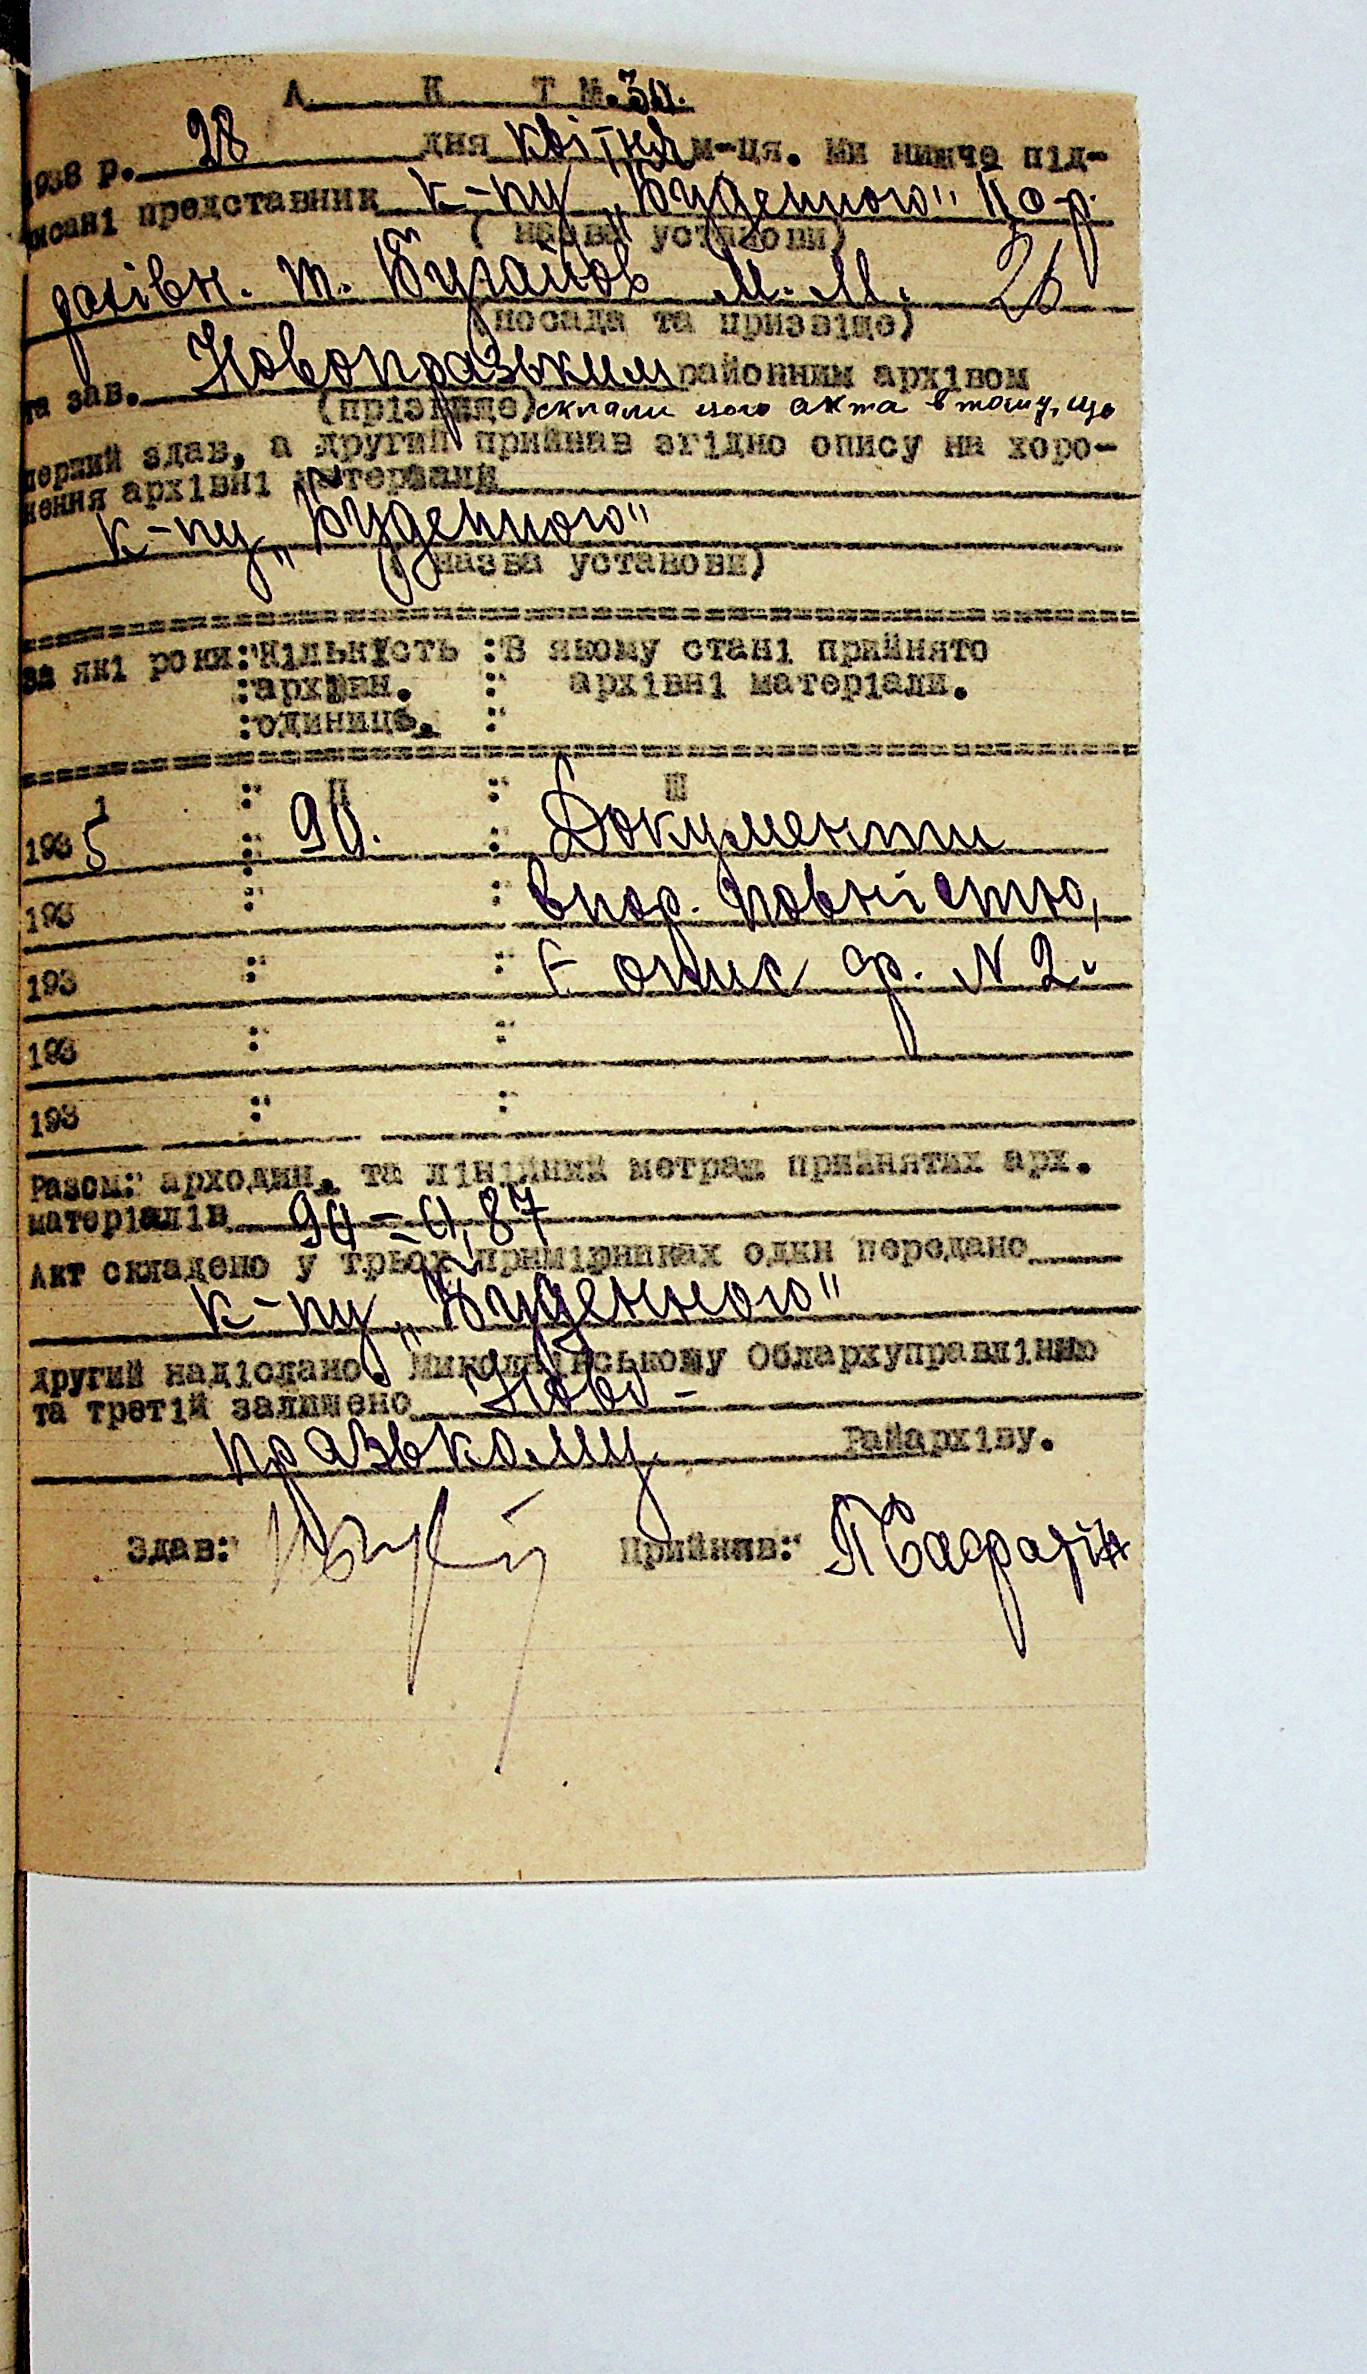 А К Т №.30.
1938 р. 28 дня квітня м-ця. Ми нижче під-
писані представник к-пу „Буденного" Но-р.
( назва установи)
рахівн. т. Бугайов М. М. 26
(посада та призвіще)
та зав. Новопразьким районним архівом
(прізвище) склали цого акта в тому, що
перший здав, а другий прийнав згідно опису на хоро-
нення архівні матеріали
к-пу „Буденного"
( назва установи)
За які роки: Кількість : В якому стані прийнято
: архівн. : архівні матеріали.
: одиниць. :
1 : II : Ш
1935 : 90. : Документи
193 : : впор. повністю,
193 : : Є опис ф. N 2.
193 : :
193 : :
Разом: арходин. та лінійний метраж прийнятих арх.
матеріалів 90 = 0,87
Акт складено у трьох примірниках один передано
к-пу „Буденного"
другий надіслано Миколаївському Облархуправлінню
та третій залишено Ново-
празькому Райархіву.
Здав: Прийняв: